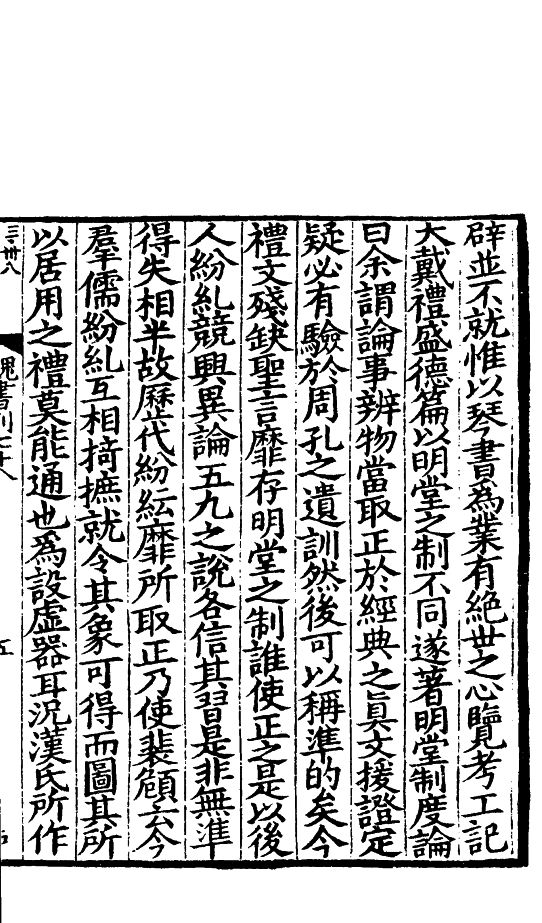 辟並不就惟以琴書為業有絕世之心覽考工記
大戴禮盛德篇以明堂之制不同遂著明堂制度論
曰余謂論事辨物當取正於經典之真文援證定
疑必有驗於周孔之遺訓然後可以稱準的矣今
禮文殘缺聖言靡存明堂之制誰使正之是以後
人紛糺競興異論五九之說各信其習是非無準
得失相半故歷代紛紜靡所取正乃使裴頠云今
羣儒紛糺互相掎摭就令其象可得而圖其所
以居用之禮莫能通也為設虛器耳況漢氏所作